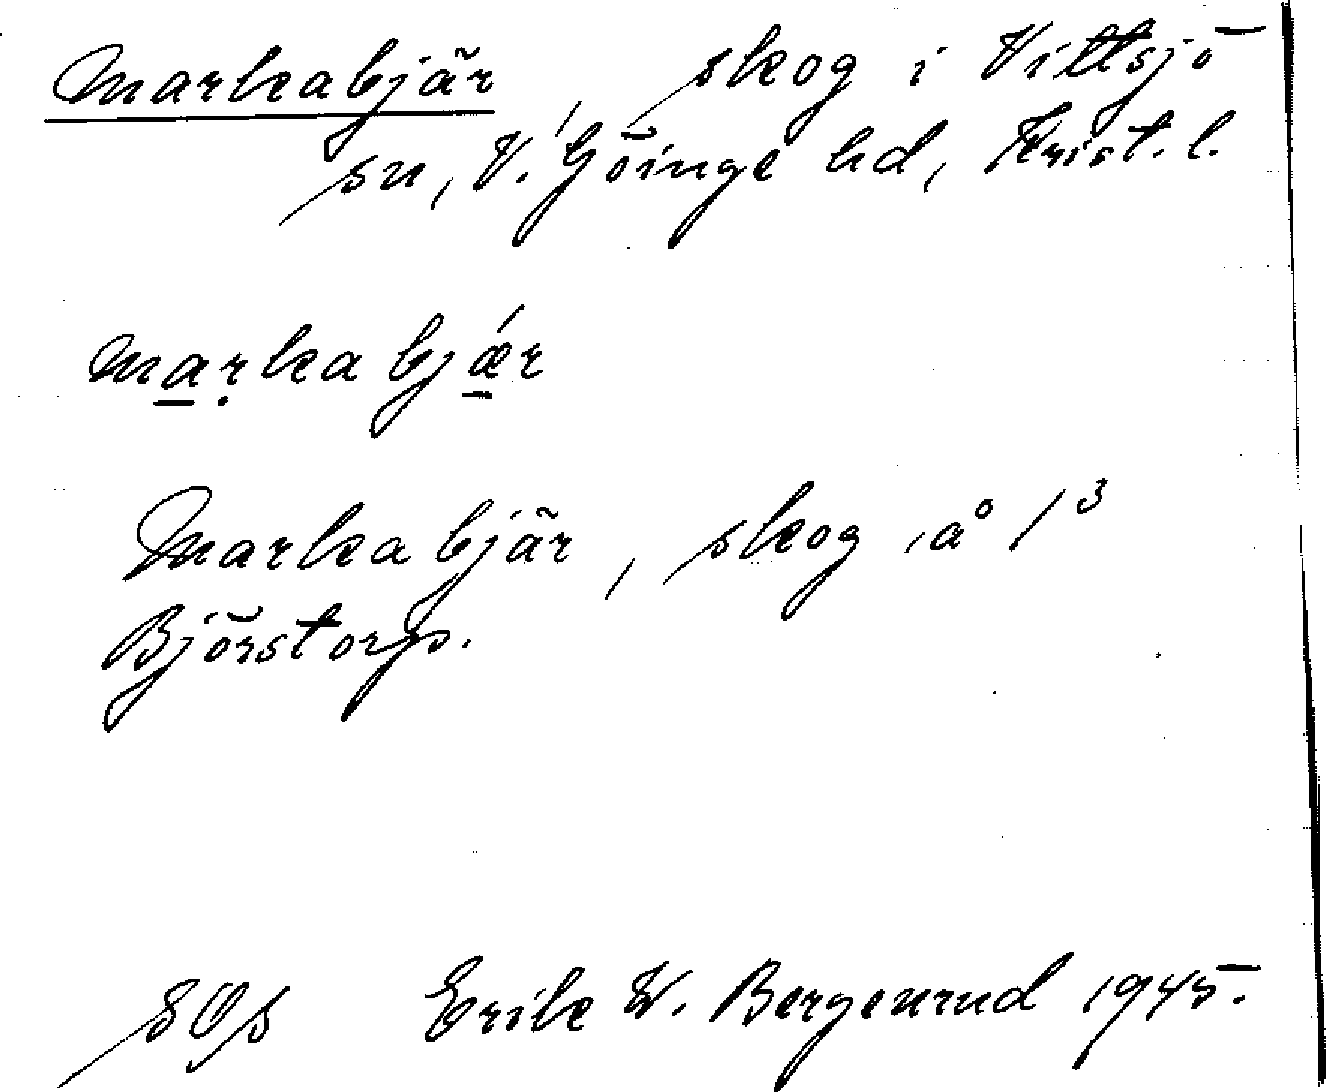 Markabjär, skog i Vittsjö
sn, V. Göinge hd, Krist. l.
maṛkabjǽr
Markabjär, skog å 1³
Björstorp.
SOS Erik W. Bergenrud 1945.